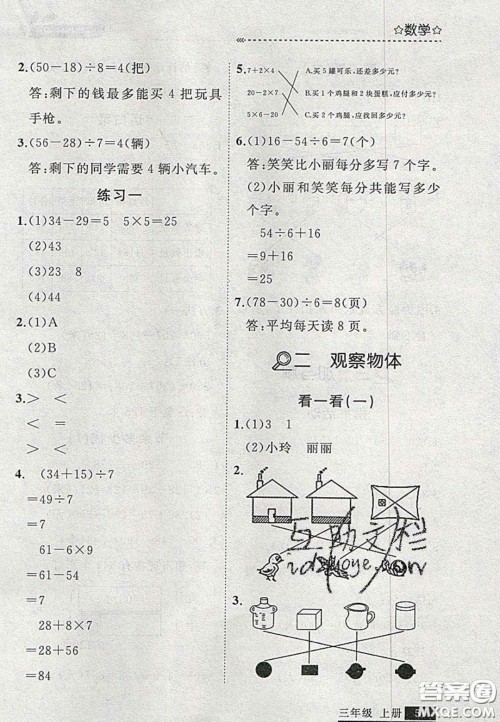 ☆数学☆
2.(50-18)÷8=4(把)
答:剩下的钱最多能买 4 把玩具
手枪。
3.(56-28)÷7=4(辆)
答:剩下的同学需要 4 辆小汽车。
练习一
1.(1)34-29=5 5×5=25
(2)43
(3)23 8
(4)44
2.(1)A
(2)B
(3)C
3.> <
< <
= <
4. (34+15)÷7
=49÷7
=7
61-6×9
=61-54
=7
28+8×7
=28+56
=84
5. 7+2×4 A.买 5 罐可乐,还差多少元?
20-2×7 B.买 1 个鸡腿和 2 块蛋糕,应付多少元?
5×6-20 C.买 2 个鸡腿,应找回多少元?
6.(1)16-54÷6=7(个)
答:笑笑比小丽每分多写 7 个字。
(2)小丽和笑笑每分共能写多少
个字。
54÷6+16
=9+16
=25
7.(78-30)÷6=8(页)
答:平均每天读 8 页。
二 观察物体
看一看(一)
1.(1)3 1
(2)小玲 丽丽
2.
互助文栏
3.
三年级 上册
答案圈
MXQE.COM